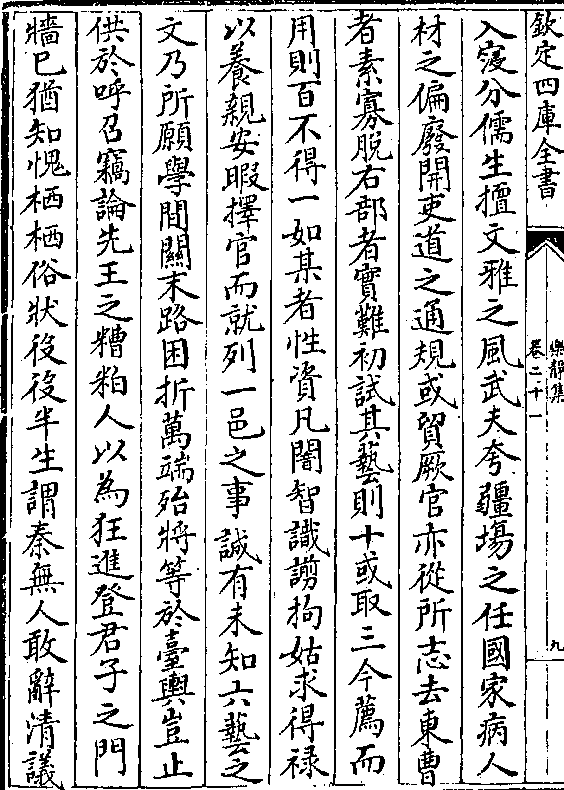 欽定四庫全書
樂靜集
卷二十一
九
入寖分儒生擅文雅之風武夫夸疆埸之任國家病人
材之偏廢開吏道之通規或貿厥官亦從所志去東曹
者素寡脱右部者實難初試其藝則十或取三今薦而
用則百不得一如某者性資凡闇智識謭拘姑求得禄
以養親安暇擇官而就列一邑之事誠有未知六藝之
文乃所願學間關末路困折萬端殆將等於臺輿豈止
供於呼召竊論先王之糟粕人以為狂進登君子之門
牆已猶知愧栖栖俗狀役役半生謂秦無人敢辭清議